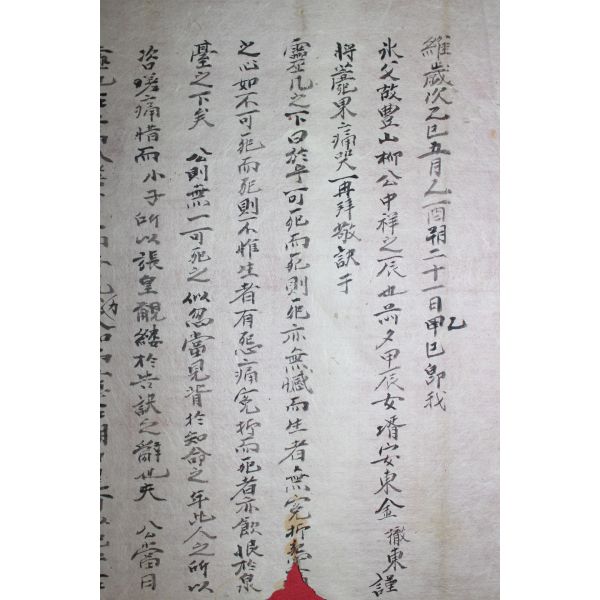 維歲次乙巳五月乙酉朔二十一日乙巳卽我
氷父故豊山柳公中祥之辰也前夕甲辰女壻安東金 撤東謹
將菲果痛哭再拜敬訣于
靈几之下曰於乎可死而死則死亦無憾而生者無寃抑
之心如不可死而死則不惟生者有怨痛寃抑而死者亦飮恨於泉
臺之下矣 公則無一可死之 似忽當見背於知命之年此人之所以
咨嗟痛惜而小子所以張皇覼縷於告訣之辭也夫 公當日